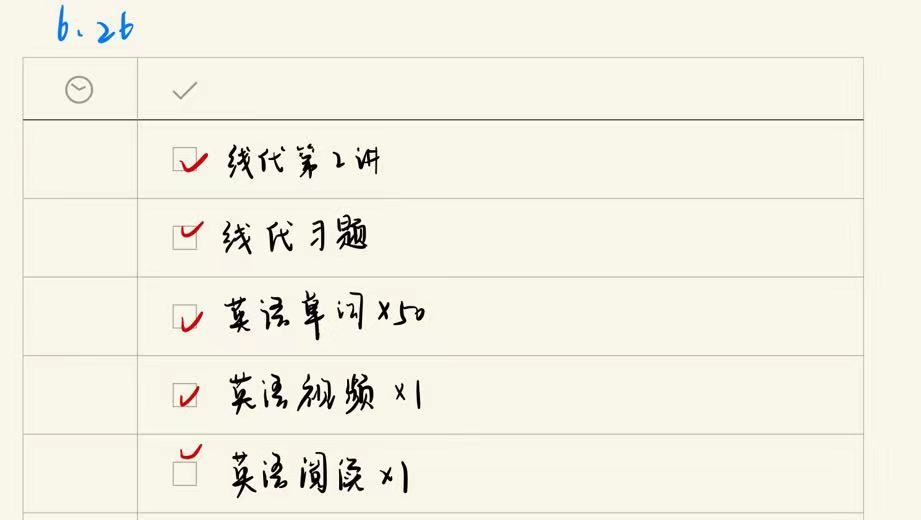 6.26
线代第2讲
线代习题
英语单词×50
英语视频×1
英语阅读×1